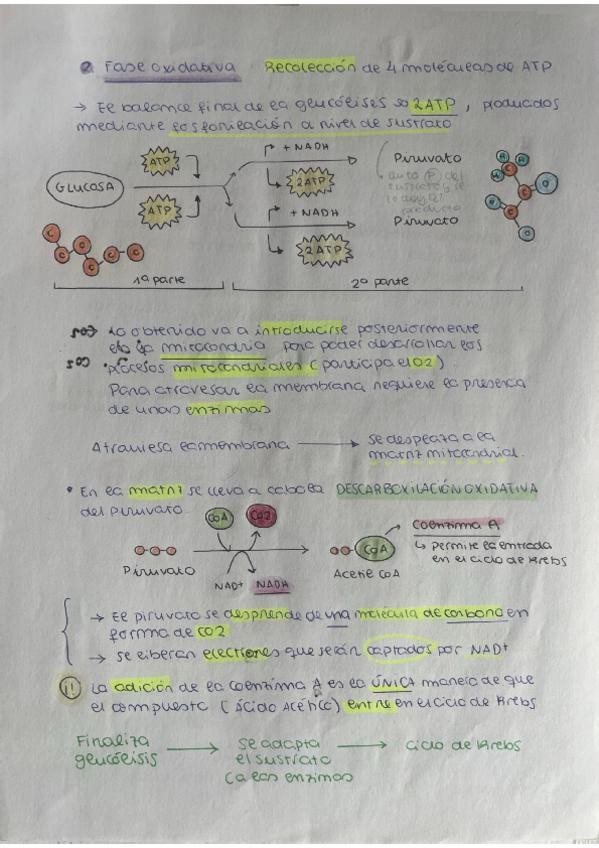 ② Fase oxidativa Recolección de 4 moléculas de ATP
→ El balance final de la glucólisis so 2ATP, producidos
mediante fosforilación a nivel de sustrato
GLUCOSA
ATP
ATP
+ NADH
2ATP
+ NADH
2ATP
Piruvato
Piruvato
C C C C C C
1ª parte
2ª parte
Lo obtenido va a introducirse posteriormente
mitocondria para poder desarrollar los
procesos mitocondriales (participa el O2)
Para atravesar la membrana requiere la presencia
de unas enzimas
Atraviesa la membrana → se desplaza a la
matriz mitocondrial.
• En la matriz se lleva a cabo la DESCARBOXILACIÓN OXIDATIVA
del piruvato
CoA
CO2
Piruvato
NAD+ NADH
CoA
Acetil CoA
Coenzima A
↳ permite la entrada
en el ciclo de Krebs
→ El piruvato se desprende de una molécula de carbono en
forma de CO2
→ Se liberan electrones que serán captados por NAD+
¡! La adición de la coenzima A es la ÚNICA manera de que
el compuesto (ácido Acético) entre en el ciclo de Krebs
Finaliza
glucólisis
→ se adapta
el sustrato
(a las enzimas
→ ciclo de Krebs